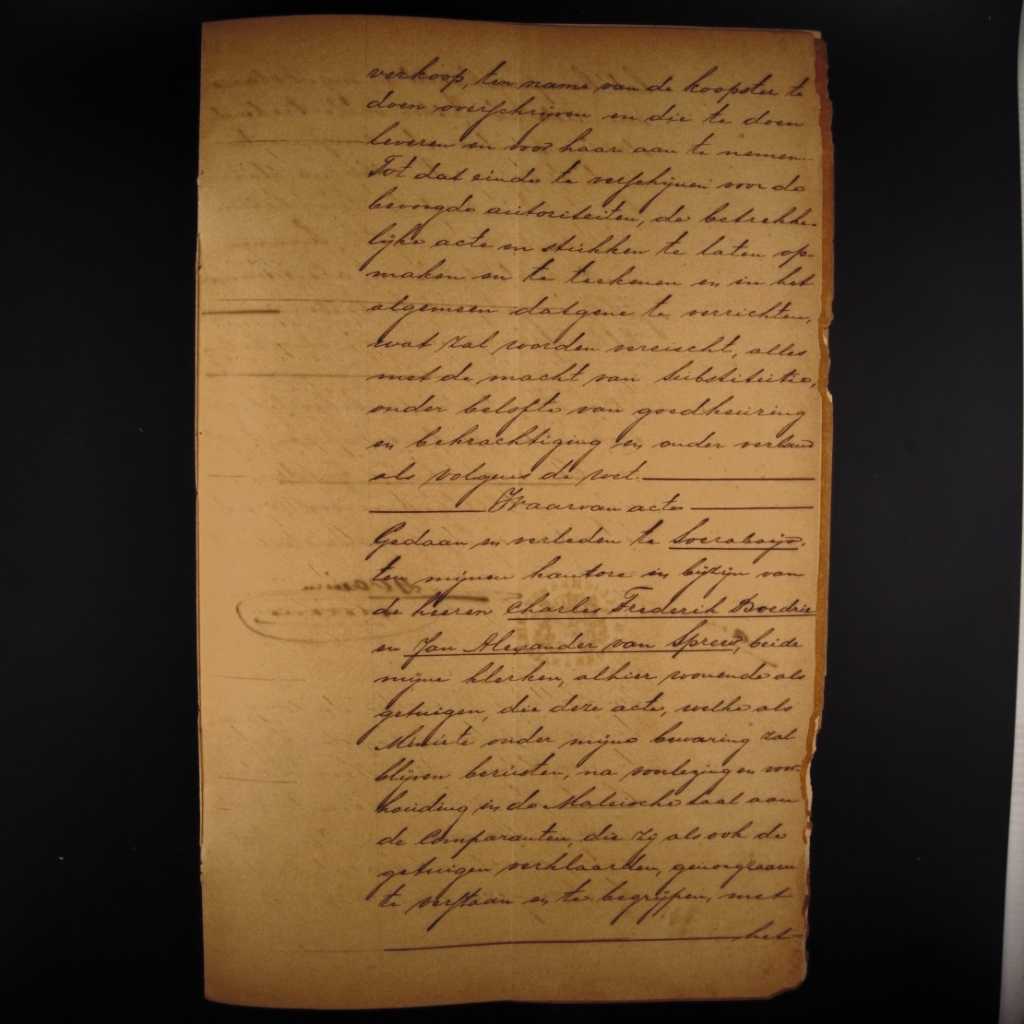 verkoop, ten name van de koopster te
doen overschrijven en die te doen
leveren en voor haar aan te nemen.
Tot dat einde te verschijnen voor de
bevoegde autoriteiten, de betrekke-
lijke acte en stukken te laten op-
maken en te teekenen en in het
algemeen datgene te verrichten,
wat zal worden vereischt, alles
met de macht van substitutie,
onder belofte van goedkeuring
en bekrachtiging en onder verband
als volgens de wet.
Waarvan acte
Gedaan en verleden te Soerabaija,
ten mijnen kantore in bijzijn van
de heeren Charles Frederik
en Jan Alexander van beide
mijne klerken, alhier wonende als
getuigen, die deze acte, welke als
Minute onder mijne bewaring zal
blijven berusten, na voorlezing en voor-
houding in de Maleische taal aan
de Comparanten, die zij als ook de
getuigen verklaarden, genoegzaam
te verstaan en te begrijpen, met
het